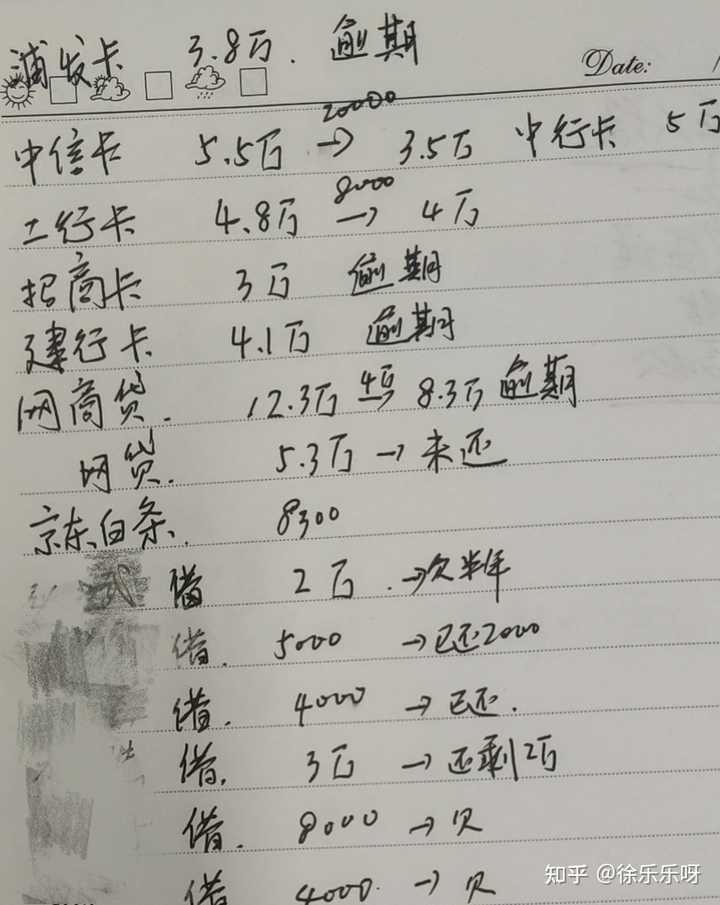 浦发卡 3.8万. 逾期
Date:
20000
中信卡 5.5万 → 3.5万 中行卡 5万
8000
工行卡 4.8万 → 4万
招商卡 3万 逾期
建行卡 4.1万 逾期
网商贷. 12.3万 4万→ 8.3万 逾期
网贷. 5.3万 → 未还
京东白条. 8300
借 2万 . → 欠半年
借. 5000 → 已还2000
借. 4000 → 已还.
借. 3万 → 还剩2万
借. 8000 → 欠
借 4000. → 欠
知乎 @徐乐乐呀